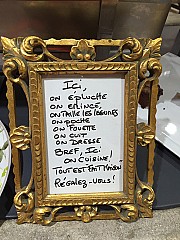 Ici,
on épluche
on émince,
on taille les légumes
on poche
on fouette
on cuit
on dresse
Bref, Ici
on cuisine!
Tout est fait maison
Régalez-vous!